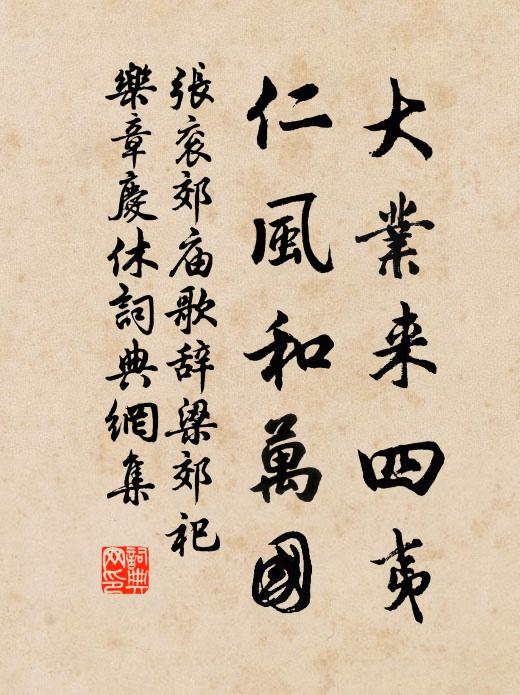 大業来四夷
仁風和萬國
張衮郊庙歌辞梁郊祀
樂章慶休詞典網集
詞典网印